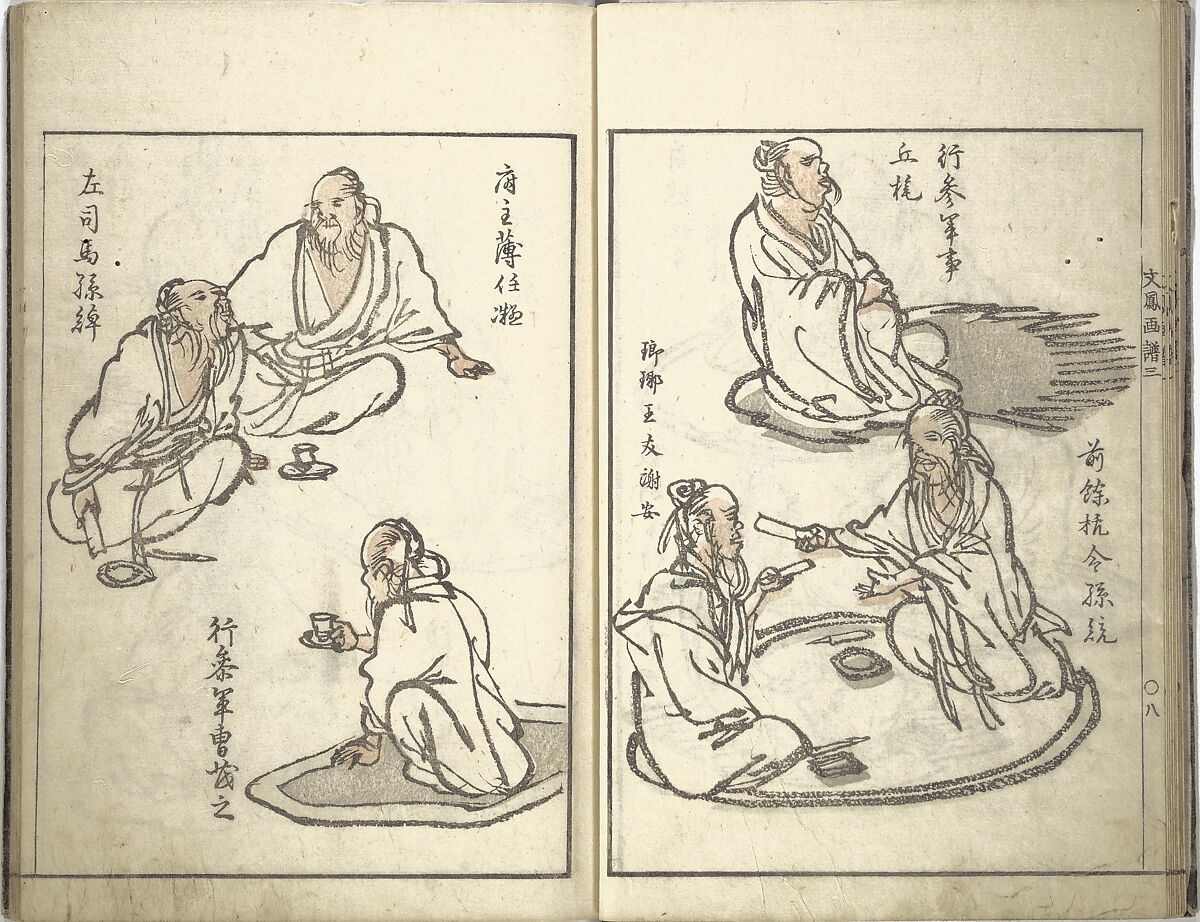 文鳳画譜三
〇八
行参軍事
丘旄
前餘杭令孫統
琅琊王友謝安
府主薄任凝
左司馬孫綽
行参軍曹茂之